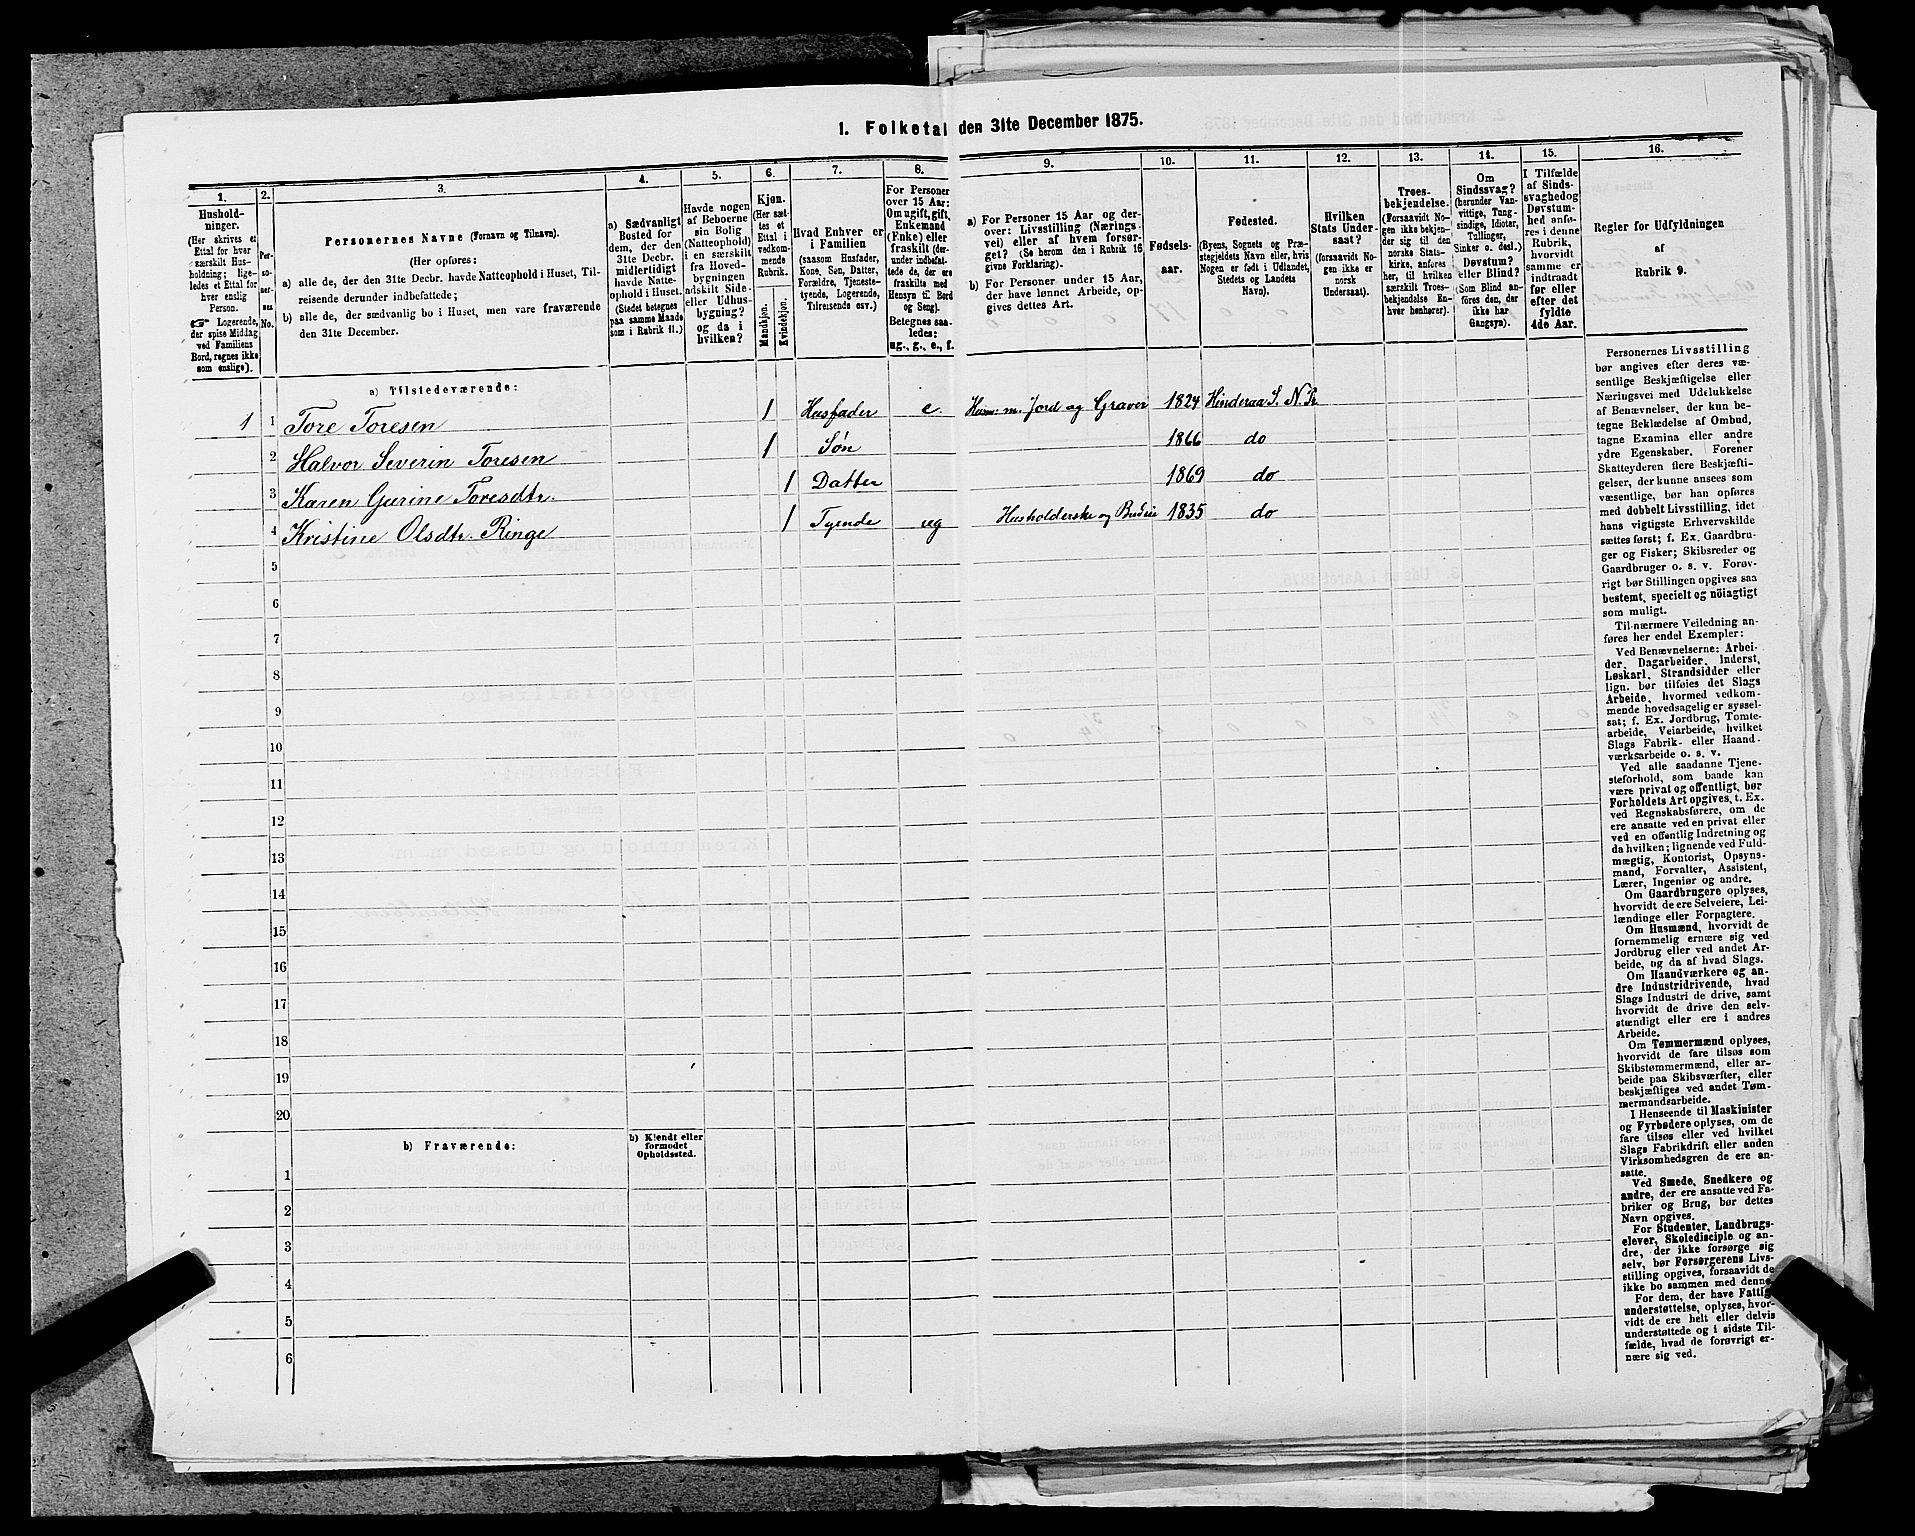 1. Folketal den 31te December 1875.
1.
Hushold-
ninger.
(Her skrives et
Ettal for hver
særskilt Hus-
holdning; lige-
ledes et Ettal for
hver enslig
Person.
☞ Logerende,
der spise Middag
ved Familiens
Bord, regnes ikke
som enslige).
2.
Per-
so-
ner-
nes
No.
3.
Personernes Navne (Fornavn og Tilnavn).
(Her opføres:
a) alle de, der den 31te Decbr. havde Natteophold i Huset, Til-
reisende derunder indbefattede;
b) alle de, der sædvanlig bo i Huset, men vare fraværende
den 31te December.
4.
a) Sædvanligt
Bosted for
dem, der den
31te Decbr.
midlertidigt
havde Natte-
ophold i Huset.
(Stedet betegnes
paa samme Maade
som i Rubrik 11.)
5.
Havde nogen
af Beboerne
sin Bolig
(Natteophold)
i en særskilt
fra Hoved-
bygningen
adskilt Side-
eller Udhus-
bygning?
og da i
hvilken?
6.
Kjøn.
(Her sæt-
tes et
Ettal i
vedkom-
mende
Rubrik.
Mandkjøn.
Kvindekjøn.
7.
Hvad Enhver er
i Familien
(saasom Husfader,
Kone, Søn, Datter,
Forældre, Tjeneste-
tyende, Logerende,
Tilreisende osv.)
8.
For Personer
over 15 Aar:
Om ugift, gift,
Enkemand
(Enke) eller
fraskilt (der-
under indbefat-
tede de, der ere
fraskilte med
Hensyn til Bord
og Seng).
Betegnes saa-
ledes:
ug., g., e., f.
9.
a) For Personer 15 Aar og der-
over: Livsstilling (Nærings-
vei) eller af hvem forsør-
get? (Se herom den i Rubrik 16
givne Forklaring).
b) For Personer under 15 Aar,
der have lønnet Arbeide, op-
gives dettes Art.
10.
Fødsels-
aar.
11.
Fødested.
(Byens, Sognets og Præ-
stegjeldets Navn eller, hvis
Nogen er født i Udlandet,
Stedets og Landets
Navn).
12.
Hvilken
Stats Under-
saat?
(forsaavidt No-
gen ikke er
norsk
Undersaat).
13.
Troes-
bekjendelse.
(Forsaavidt No-
gen ikke bekjen-
der sig til den
norske Stats-
kirke, anføres
her, til hvilken
særskilt Troes-
bekjendelse En-
hver henhører).
14.
Om
Sindssvag?
(herunder Van-
vittige, Tung-
sindige, Idioter,
Tullinger,
Sinker o. desl.).
Døvstum?
eller Blind?
(Som Blind an-
føres den, der
ikke har
Gangsyn).
15.
I Tilfælde
af Sinds-
svaghed og
Døvstum-
hed anfø-
res i denne
Rubrik,
hvorvidt
samme er
indtraadt
før eller
efter det
fyldte
4de Aar.
16.
Regler for Udfyldningen
af
Rubrik 9.
a) Tilstedeværende:
1 1 Tore Toresen 1 Husfader e. Husm: m. Jord og Graver 1824 Hinderaa S. N. Pr
2 Halvor Severin Toresen 1 Søn 1866 do
3 Karen Gurine Toresdtr. 1 Datter 1869 do
4 Kristine Olsdtr. Ringe 1 Tyende ug Husholderske og Budeie 1835 do
5
6
7
8
9
10
11
12
13
14
15
16
17
18
19
20
b) Fraværende:
b) Kjendt eller
formodet
Opholdssted.
1
2
3
4
5
6
Personernes Livsstilling
bør angives efter deres væ-
sentlige Beskjæftigelse eller
Næringsvei med Udelukkelse
af Benævnelser, der kun be-
tegne Beklædelse af Ombud,
tagne Examina eller andre
ydre Egenskaber. Forener
Skatteyderen flere Beskjæfti-
gelser, der kunne ansees som
væsentlige, bør han opføres
med dobbelt Livsstilling, idet
hans vigtigste Erhvervskilde
sættes først; f. Ex. Gaardbru-
ger og Fisker; Skibsreder og
Gaardbruger o. s. v. Forøv-
rigt bør Stillingen opgives saa
bestemt, specielt og nöiagtigt
som muligt.
Til nærmere Veiledning an-
føres her endel Exempler:
Ved Benævnelserne: Arbei-
der, Dagarbeider, Inderst,
Løskarl, Strandsidder eller
lign. bør tilføies det Slags
Arbeide, hvormed vedkom-
mende hovedsagelig er syssel-
sat; f. Ex. Jordbrug, Tomte-
arbeide, Veiarbeide, hvilket
Slags Fabrik- eller Haand-
værksarbeide o. s. v.
Ved alle saadanne Tjene-
steforhold, som baade kan
være privat og offentligt, bør
Forholdets Art opgives, t. Ex.
ved Regnskabsførere, om de
ere ansatte ved en privat eller
ved en offentlig Indretning og
da hvilken; lignende ved Fuld-
mægtig, Kontorist, Opsyns-
mand, Forvalter, Assistent,
Lærer, Ingeniør og andre.
Om Gaardbrugere oplyses,
hvorvidt de ere Selveiere, Lei-
lændinge eller Forpagtere.
Om Husmænd, hvorvidt de
fornemmelig ernære sig ved
Jordbrug eller ved andet Ar-
beide, og da af hvad Slags.
Om Haandværkere og an-
dre Industridrivende, hvad
Slags Industri de drive, samt
hvorvidt de drive den selv-
stændigt eller ere i andres
Arbeide.
Om Tømmermænd oplyses,
hvorvidt de fare tilsøs som
Skibstømmermænd, eller ar-
beide paa Skibsværfter, eller
beskjæftiges ved andet Tøm-
mermandsarbeide.
I Henseende til Maskinister
og Fyrbødere oplyses, om de
fare tilsøs eller ved hvilket
Slags Fabrikdrift eller anden
Virksomhedsgren de ere an-
satte.
Ved Smede, Snedkere og
andre, der ere ansatte ved Fa-
briker og Brug, bør dettes
Navn opgives.
For Studenter, Landbrugs-
elever, Skoledisciple og an-
dre, der ikke forsørge sig
selv, bør Forsørgerens Livs-
stilling opgives, forsaavidt de
ikke bo sammen med denne.
For dem, der have Fattig-
understøttelse, oplyses, hvor-
vidt de ere helt eller delvis
understøttede og i sidste Til-
fælde, hvad de forøvrigt er-
nære sig ved.